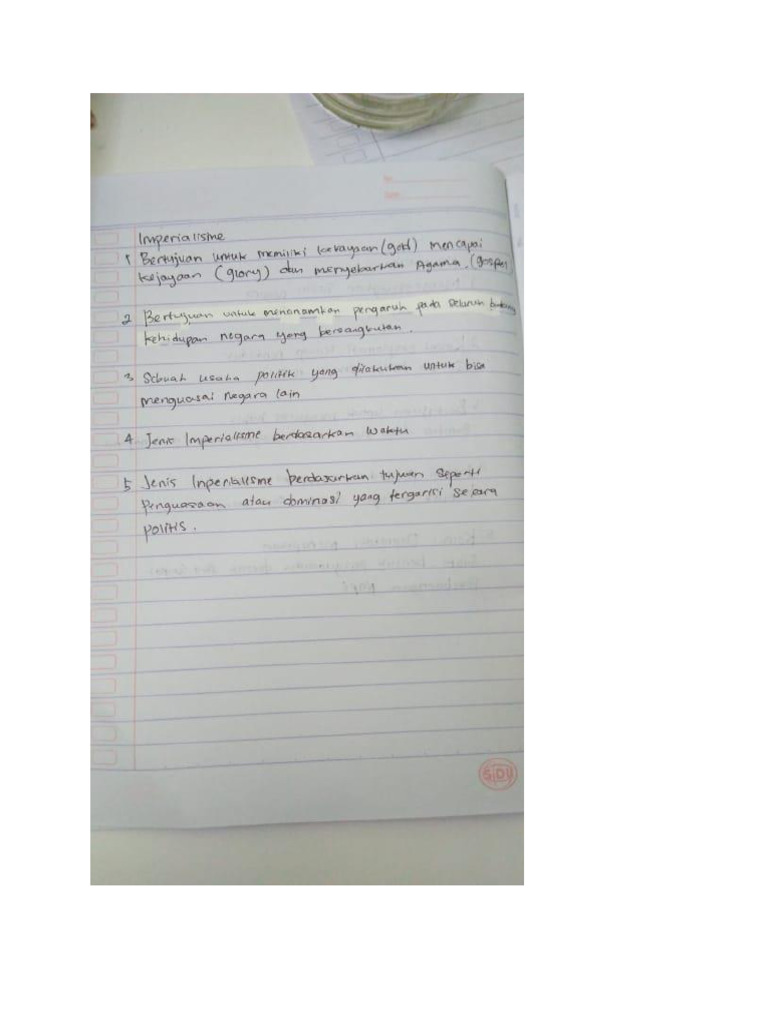 Imperialisme
1 Bertujuan untuk memiliki kekayaan (gold) mencapai
kejayaan (glory) dan menyebarkan Agama. (gospel)
2 Bertujuan untuk menanamkan pengaruh pada seluruh bidang
kehidupan negara yang bersangkutan.
3 Sebuah usaha politik yang dilakukan untuk bisa
menguasai negara lain
4 Jenis Imperialisme berdasarkan waktu
5 Jenis Inperialisme berdasarkan tujuan seperti
penguasaan atau dominasi yang tergarisi secara
politis.
SiDU